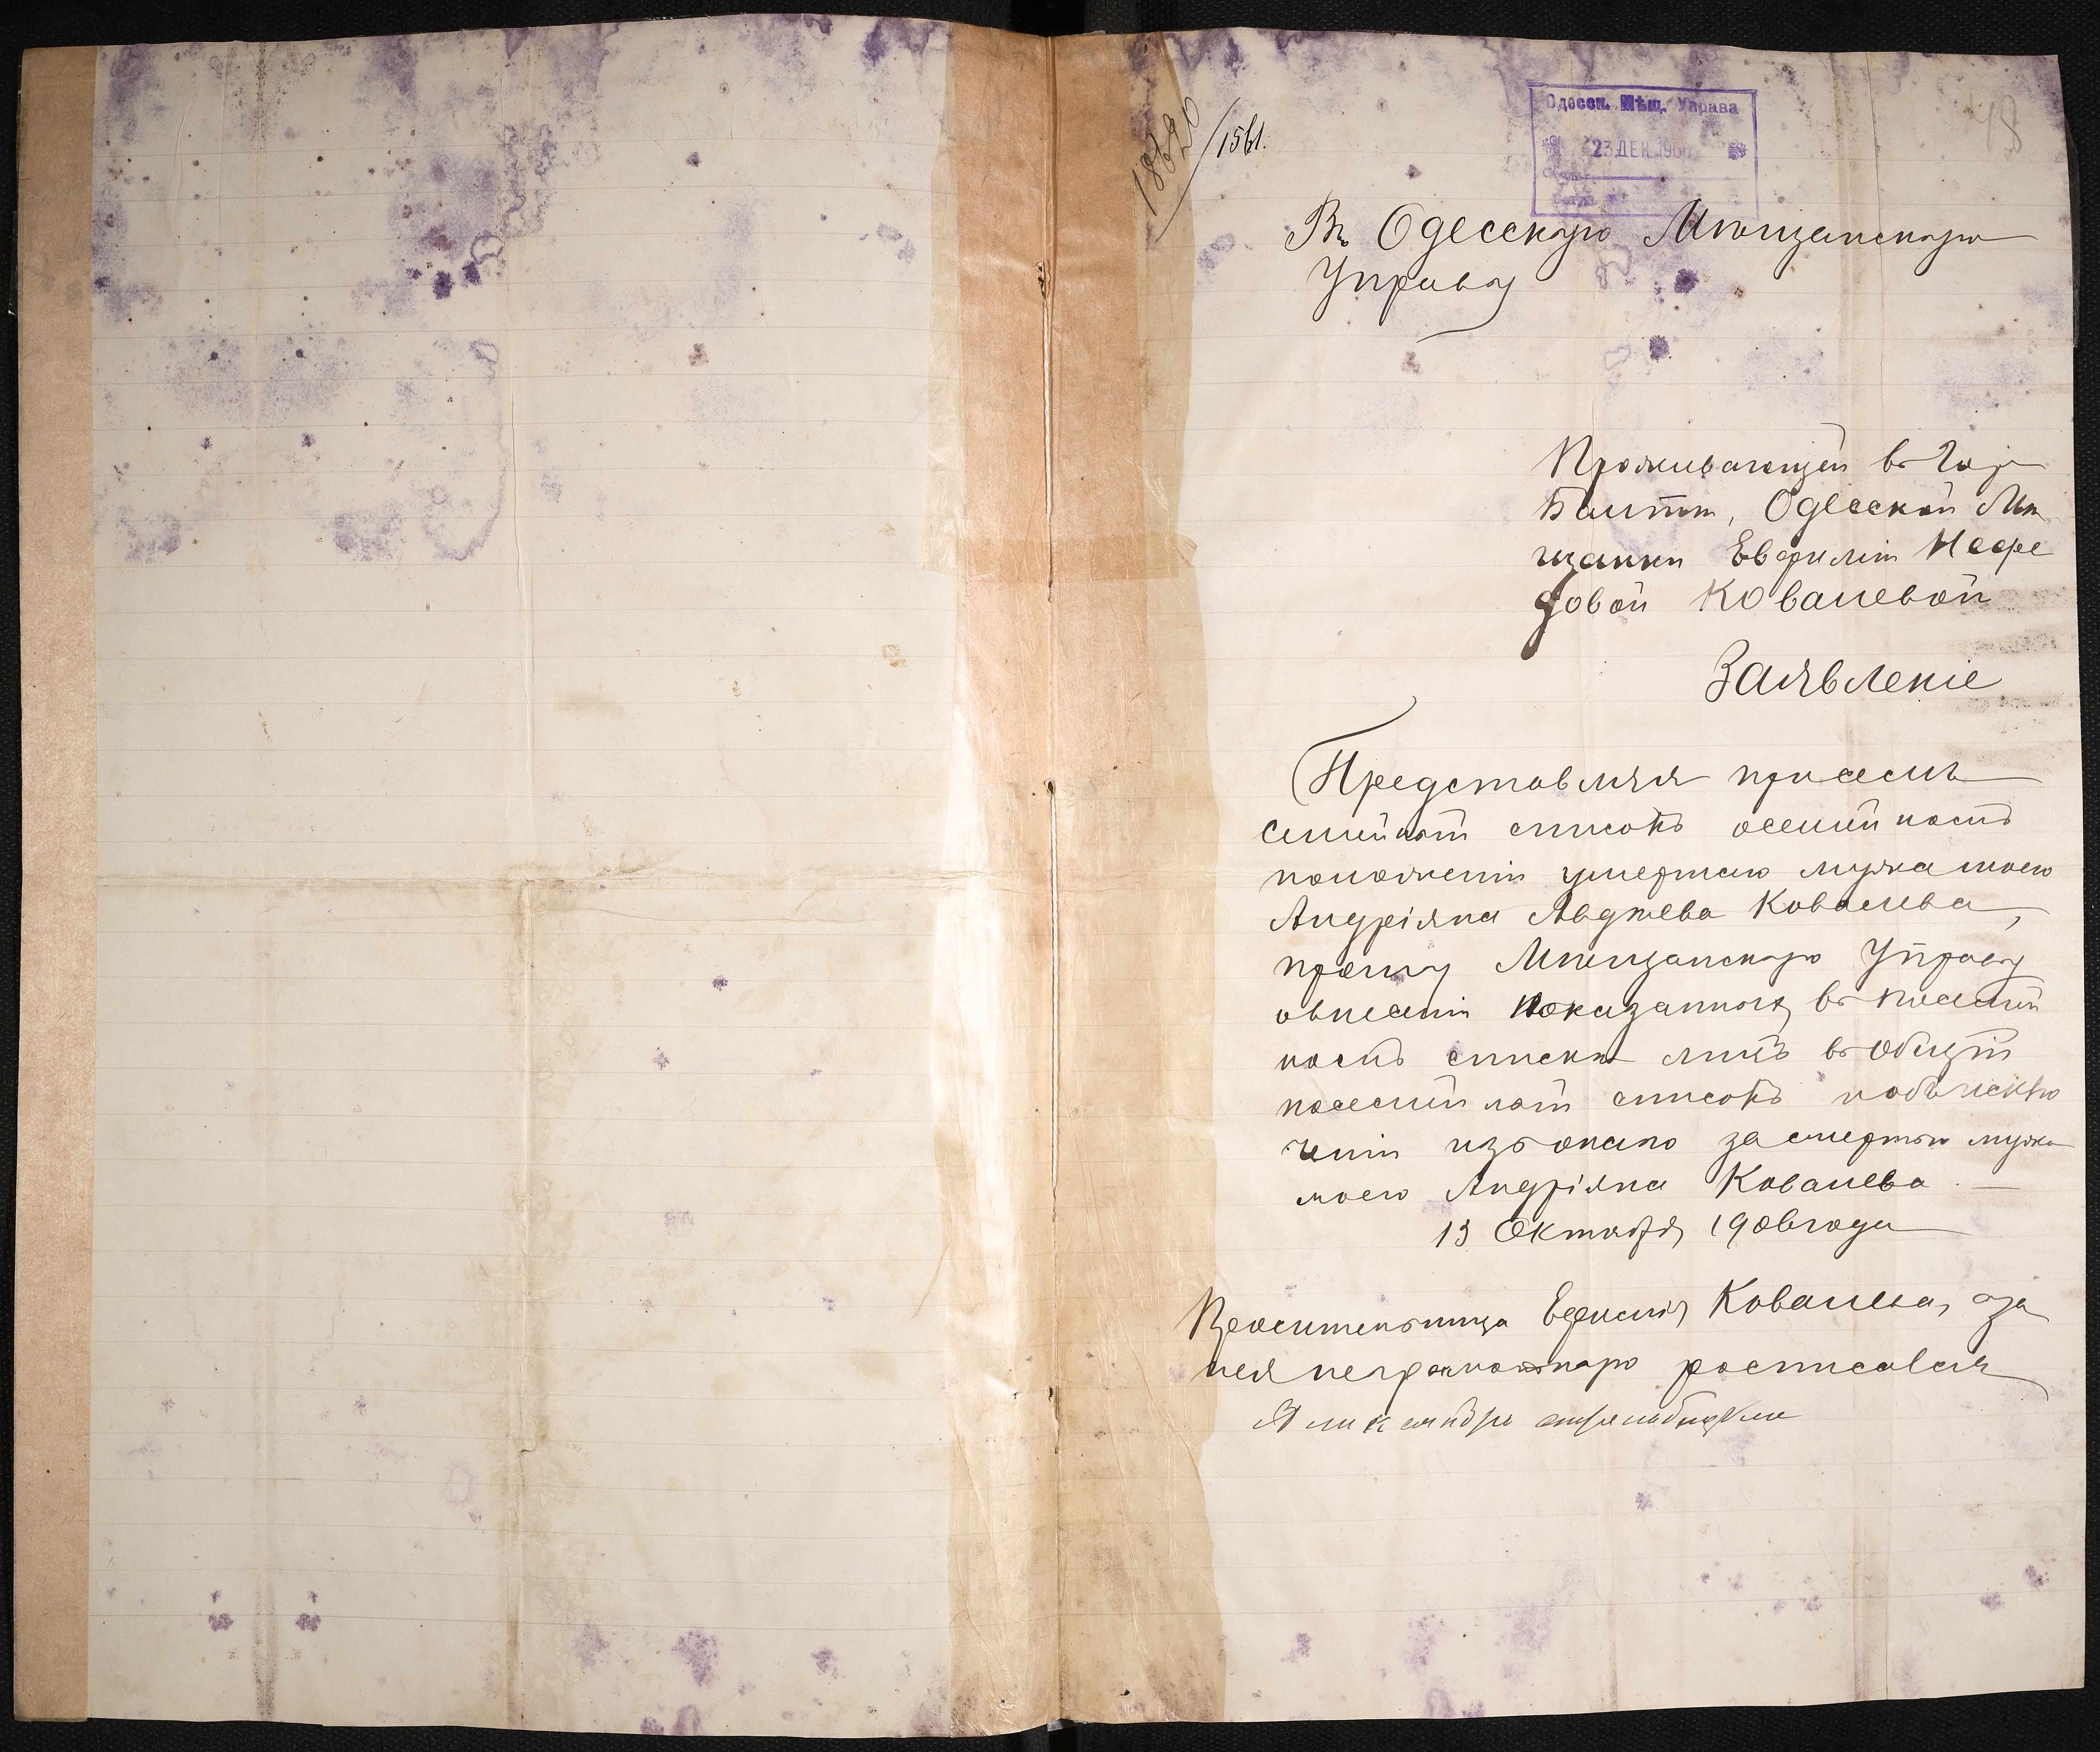 18620/1561.
Одесск. Мѣщ. Управа
23 ДЕК 1906
48
Въ Одесскую Мѣщанскую
Управу
Проживающей въ Гор
Балтѣ, Одесской Мѣ
щанки Евфиміи Нефе
довой Ковалевой
Заявленіе
Представляя присемъ
семѣйной списокъ осемѣйномъ
положеніи умершаго мужа моего
Андріяна Авдѣева Ковалева,
прошу Мѣщанскую Управу
овнесеніи показанныхъ въ посемѣй
номъ спискѣ лицъ въ общій
посемѣйной списокъ
изъ онаго за смертью мужа
моего Андріяна Ковалева. —
13 Октября 1906 года
Просительница Ефимія Ковалева, аза
нея неграмотную росписался